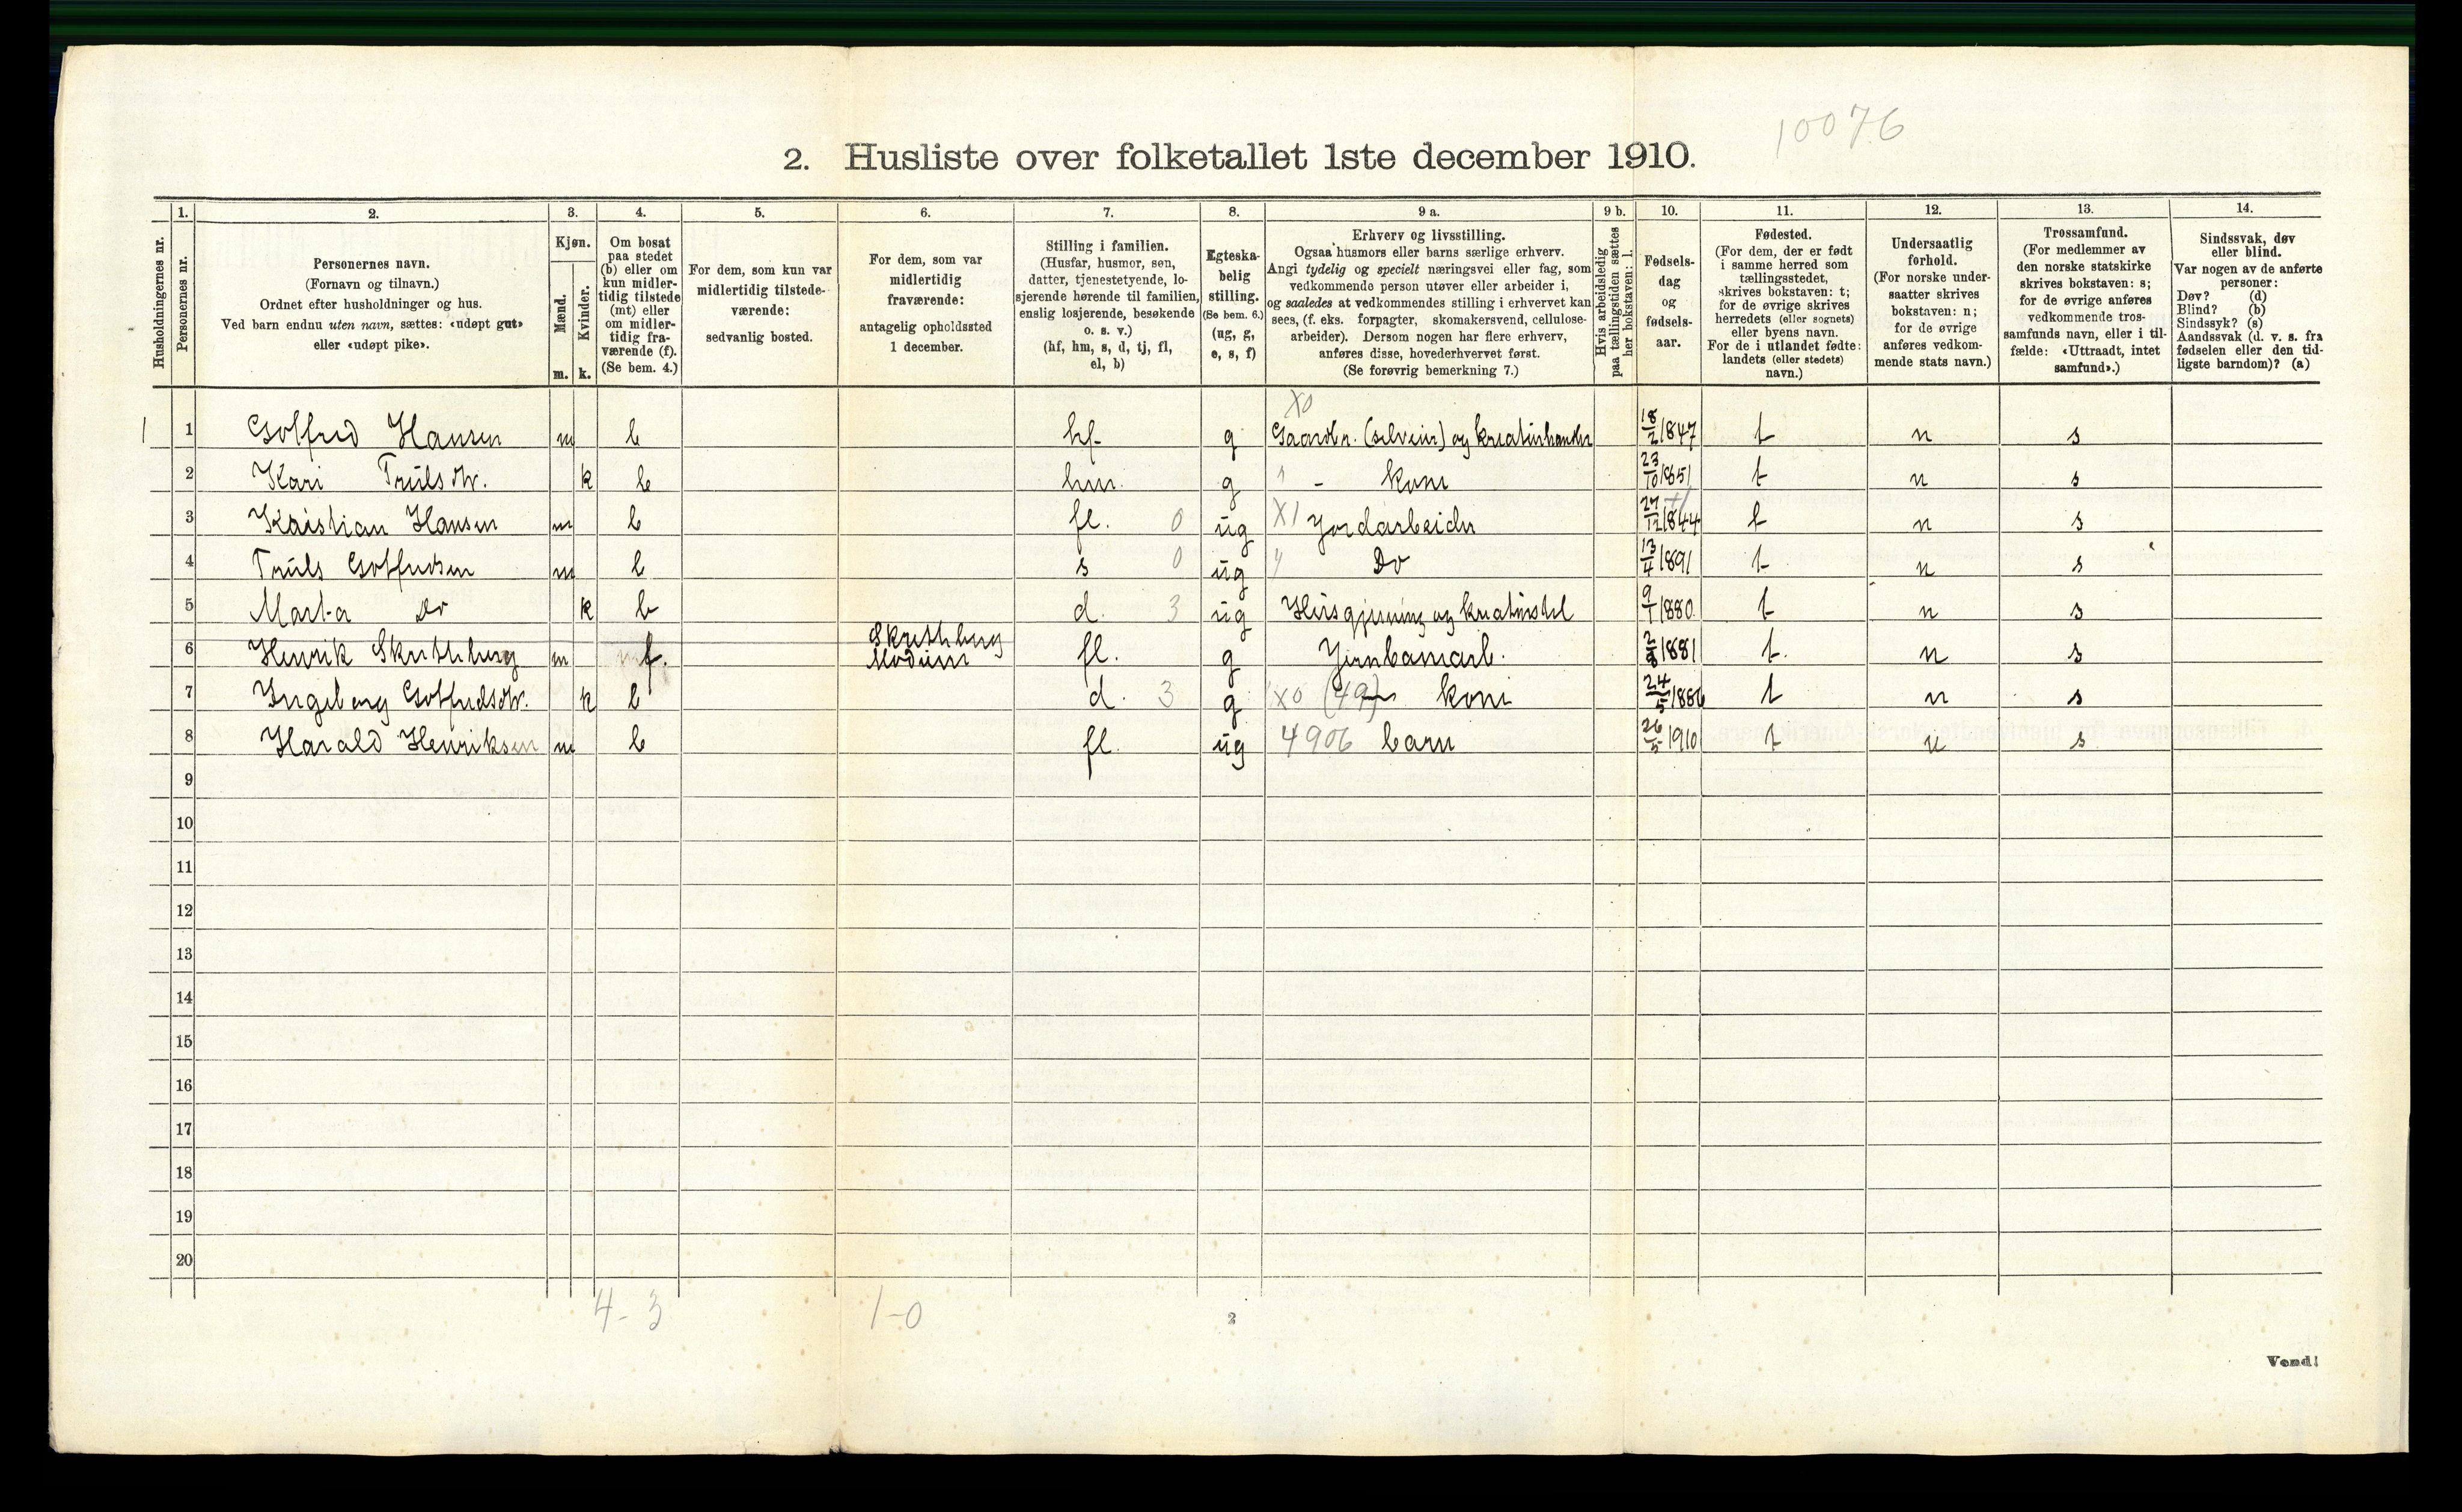 10076
2. Husliste over folketallet 1ste december 1910.
Husholdningernes nr.
1.
Personernes nr.
2.
Personernes navn.
(Fornavn og tilnavn.)
Ordnet efter husholdninger og hus.
Ved barn endnu uten navn, sættes: «udøpt gut»
eller «udøpt pike».
3.
Kjøn.
Mænd.
Kvinder.
m. k.
4.
Om bosat
paa stedet
(b) eller om
kun midler-
tidig tilstede
(mt) eller
om midler-
tidig fra-
værende (f).
(Se bem. 4.)
5.
For dem, som kun var
midlertidig tilstede-
værende:
sedvanlig bosted.
6.
For dem, som var
midlertidig
fraværende:
antagelig opholdssted
1 december.
7.
Stilling i familien.
(Husfar, husmor, søn,
datter, tjenestetyende, lo-
sjerende hørende til familien,
enslig losjerende, besøkende
o. s. v.)
(hf, hm, s, d, tj, fl,
el, b)
8.
Egteska-
belig
stilling.
(Se bem. 6.)
(ug, g,
e, s, f)
9 a.
Erhverv og livsstilling.
Ogsaa husmors eller barns særlige erhverv.
Angi tydelig og specielt næringsvei eller fag, som
vedkommende person utøver eller arbeider i,
og saaledes at vedkommendes stilling i erhvervet kan
sees, (f. eks. forpagter, skomakersvend, cellulose-
arbeider). Dersom nogen har flere erhverv,
anføres disse, hovederhvervet først.
(Se forøvrig bemerkning 7.)
9 b.
Hvis arbeidsledig
paa tællingstiden sættes
her bokstaven: l.
10.
Fødsels-
dag
og
fødsels-
aar.
11.
Fødested.
(For dem, der er født
i samme herred som
tællingsstedet,
skrives bokstaven: t;
for de øvrige skrives
herredets (eller sognets)
eller byens navn.
For de i utlandet fødte:
landets (eller stedets)
navn.)
12.
Undersaatlig
forhold.
(For norske under-
saatter skrives
bokstaven: n;
for de øvrige
anføres vedkom-
mende stats navn.)
13.
Trossamfund.
(For medlemmer av
den norske statskirke
skrives bokstaven: s;
for de øvrige anføres
vedkommende tros-
samfunds navn, eller i til-
fælde: «Uttraadt, intet
samfund».)
14.
Sindssvak, døv
eller blind.
Var nogen av de anførte
personer:
Døv? (d)
Blind? (b)
Sindssyk? (s)
Aandssvak (d. v. s. fra
fødselen eller den tid-
ligste barndom)? (a)
X0
1 1 Gotfred Hansen m b hf. g Gaardbr. (selveier) og kreaturhandler 18/2 1847 t n s
2 Kari Trulsdtr. k b hm. g " - kone 23/10 1851 t n s
3 Kristian Hansen m b fl. 0 ug X1 Jordarbeider 27/12 1844 t n s
4 Truls Gotfredsen m b s 0 ug " Do 13/4 1891 t n s
5 Marta Do k b d. 3 ug Husgjerning og kreaturstel 9/1 1880 t n s
6 Henrik Skretteberg m f. Skretteberg Modum fl. g Jernbanearb. 2/8 1881 t. n s
7 Ingeborg Gotfredsdtr. k b d. 3 g X0 (49) kone 24/5 1886 t n s
8 Harald Henriksen m b fl. ug 4906 barn 26/5 1910 t n s
9
10
11
12
13
14
15
16
17
18
19
20
4-3 1-0
2
Vend!